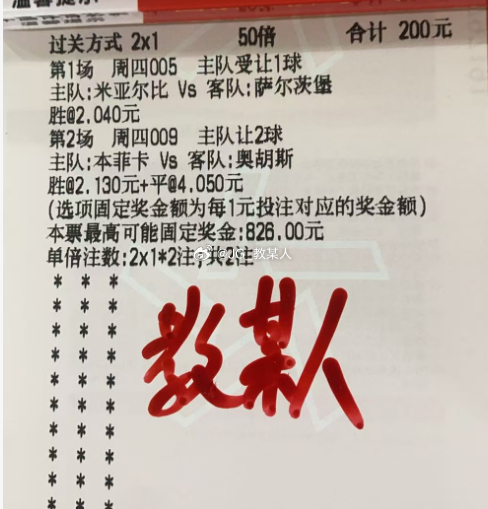 温馨提示
过关方式 2x1 50倍 合计 200元
第1场 周四005 主队受让1球
主队:米亚尔比 Vs 客队:萨尔茨堡
胜@2.040元
第2场 周四009 主队让2球
主队:本菲卡 Vs 客队:奥胡斯
胜@2.130元+平@4.050元
(选项固定奖金额为每1元投注对应的奖金额)
本票最高可能固定奖金:826.00元
单倍注数:2x1*2注;共2注
@JG_教某人
* * *
* * *
* * *
* * *
* * *
* * *
* * *
* * *
* * *
* * *
教某人